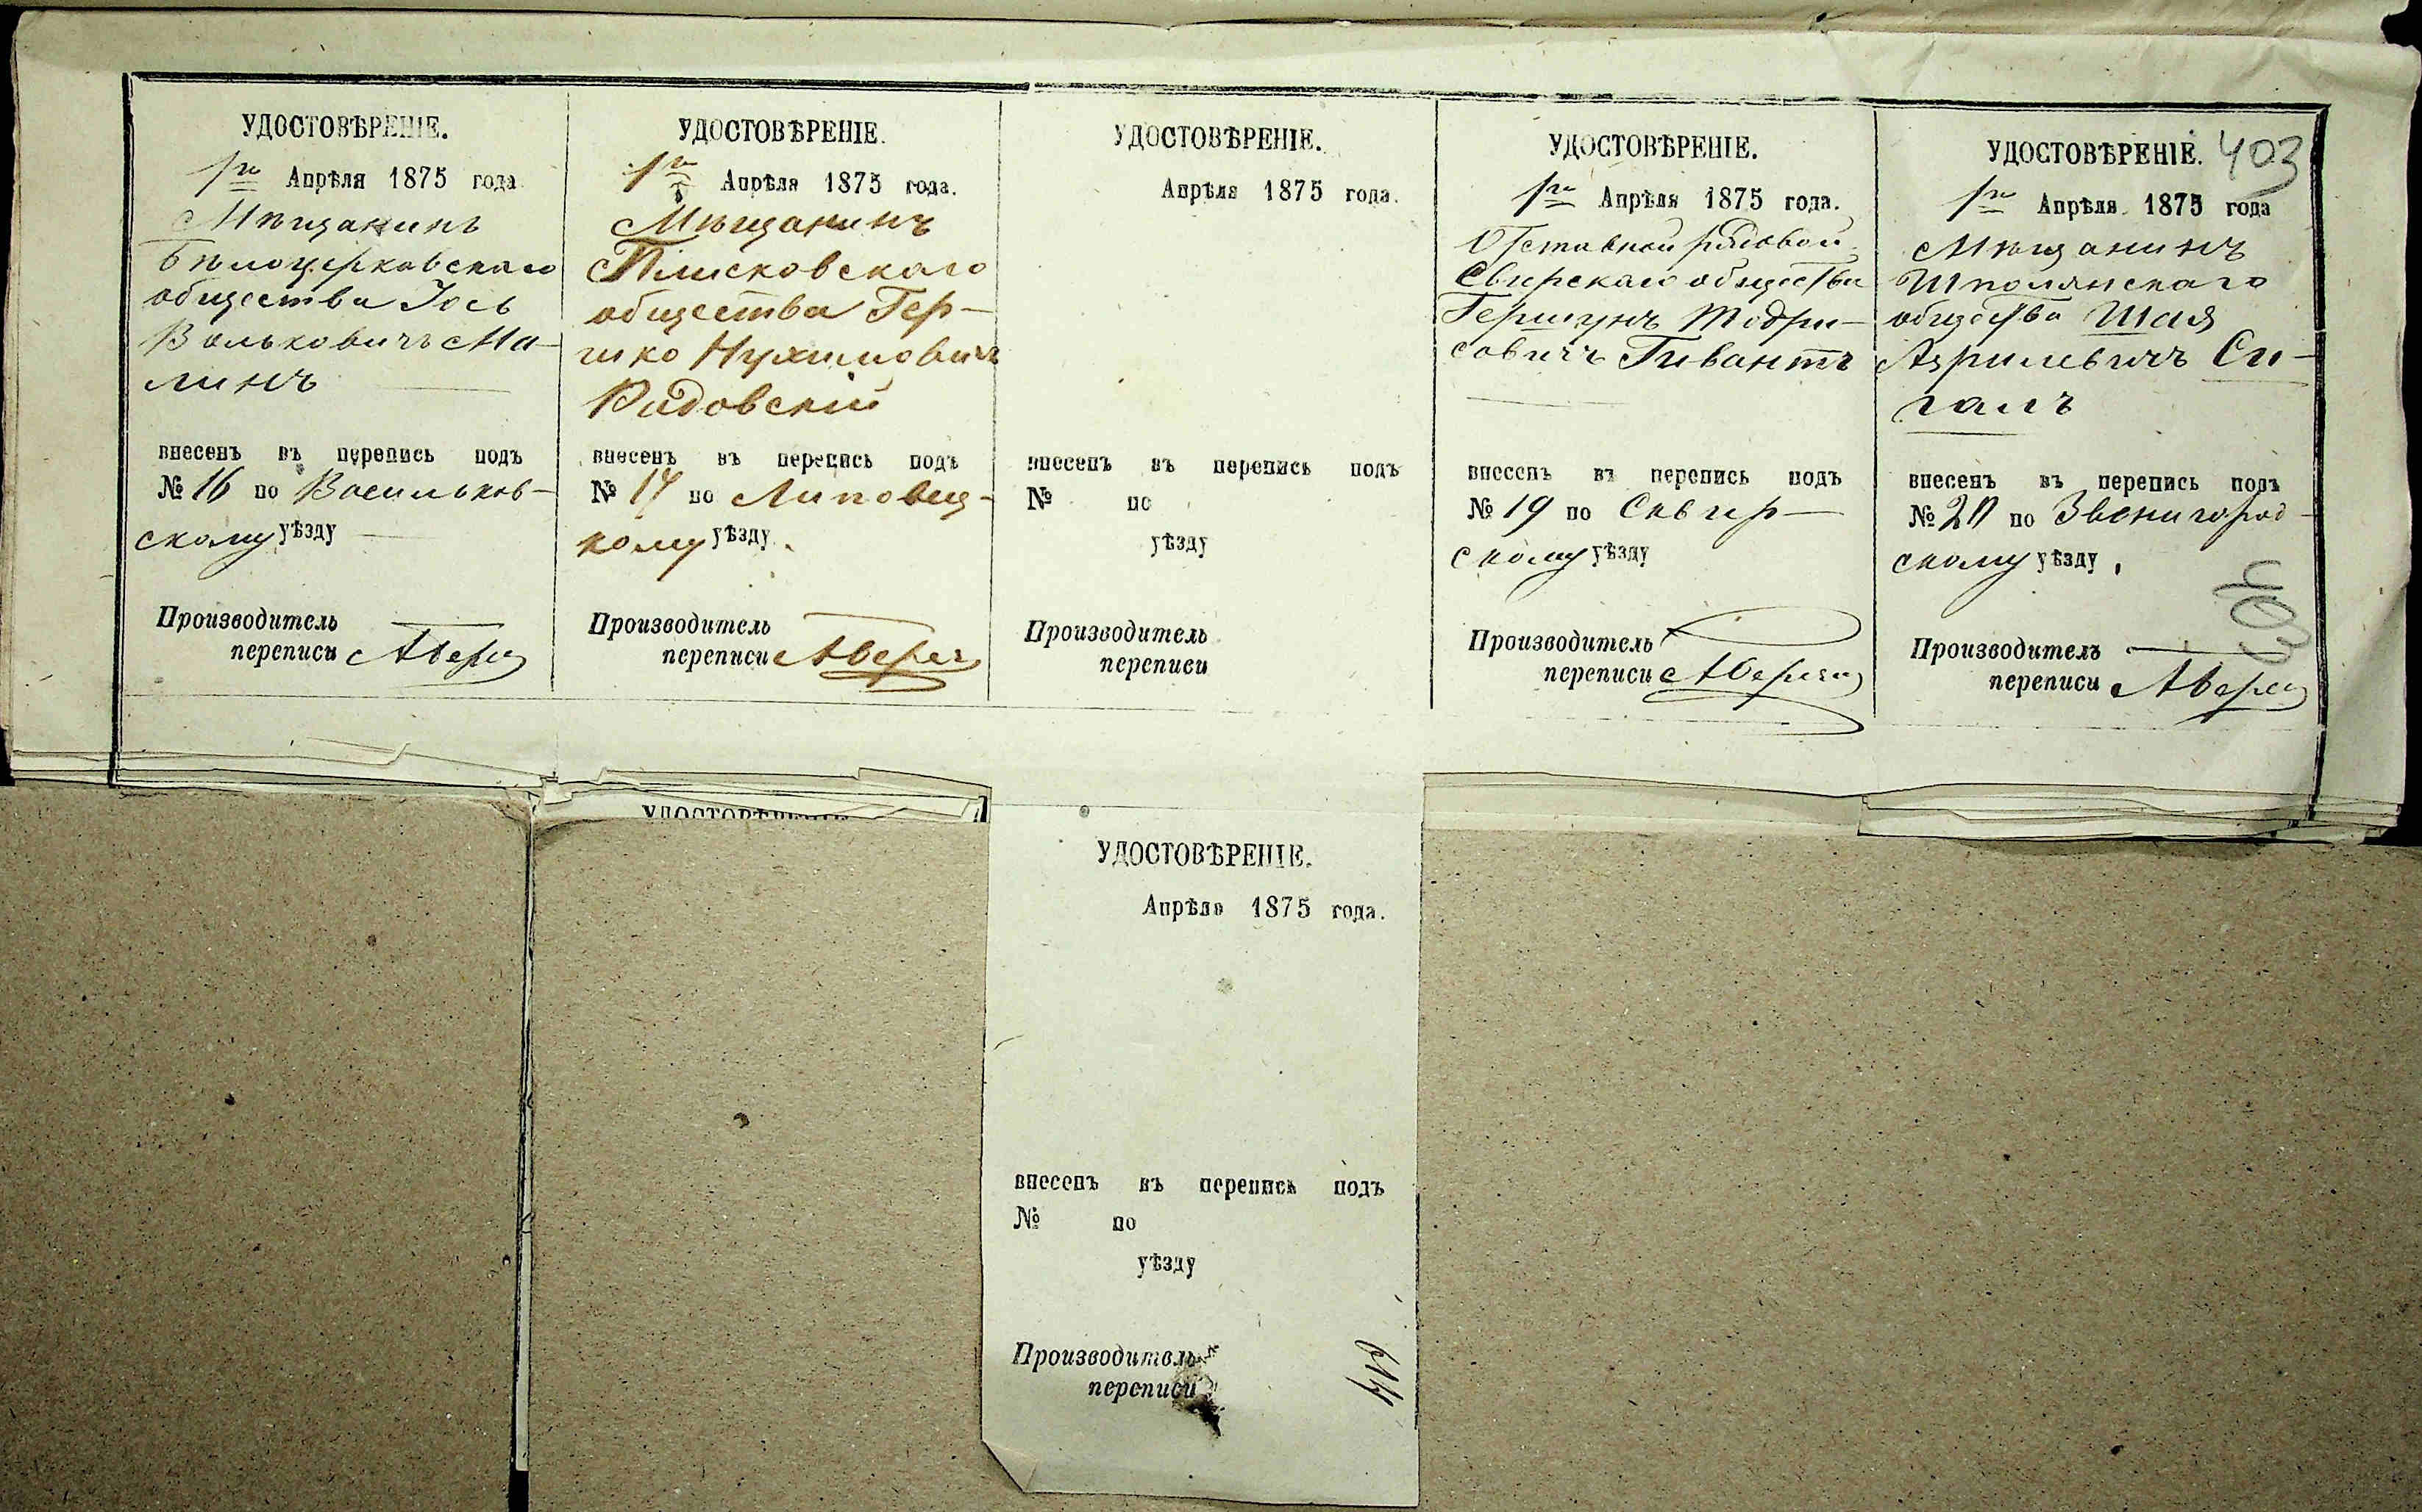 УДОСТОВѢРЕНІЕ.
1го Апрѣля 1875 года
Мѣщанинъ
Бѣлоцерковскаго
общества Іось
Вольковичъ Ма-
линъ
внесенъ въ перепись подъ
№ 16 по Васильков-
скому уѣзду
Производитель
переписи
УДОСТОВѢРЕНІЕ.
1го Апрѣля 1875 года.
Мѣщанинъ
Плисковскаго
общества Гер-
шко Нухимовичъ
Радовскій
внесенъ въ перепись подъ
№ 17 по Липовец-
кому уѣзду.
Производитель
переписи
УДОСТОВѢРЕНІЕ.
Апрѣля 1875 года.
внесенъ въ перепись подъ
№ по
уѣзду
Производитель
переписи
УДОСТОВѢРЕНІЕ.
1го Апрѣля 1875 года.
Отставной рядовой
Сквирскаго общества
Гершунъ
Гивантъ
внесенъ въ перепись подъ
№ 19 по Сквир-
скому уѣзду
Производитель
переписи
УДОСТОВѢРЕНІЕ. 403
1го Апрѣля 1875 года
Мѣщанинъ
Шполянскаго
общества Шая
Азрилевичъ Си-
галъ
внесенъ въ перепись подъ
№ 20 по Звенигород-
скому уѣзду.
403
Производитель
переписи
УДОСТОВѢРЕНІЕ
УДОСТОВѢРЕНІЕ.
Апрѣля 1875 года.
внесенъ въ перепись подъ
№ по
уѣзду
Производитель
переписи